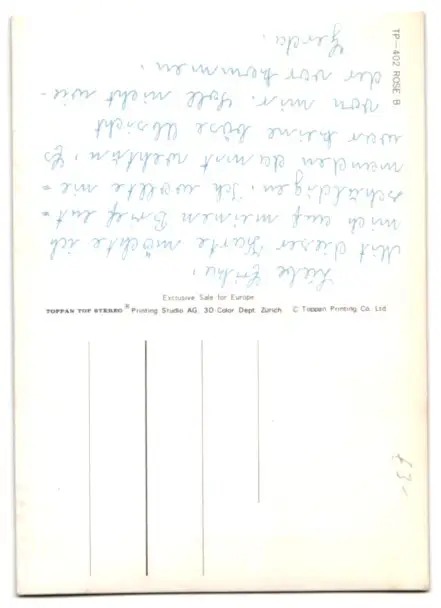 Liebe Erika,
Mit dieser Karte möchte ich
mich auf meinen Brief ent=
schuldigen. Ich wollte nie=
manden damit wehtun. Es
war keine böse Absicht
von mir. Soll nicht wie-
der vor kommen.
Gerda.
TP—402 ROSE B
Exclusive Sale for Europe
TOPPAN TOP STEREO ® Printing Studio AG. 3D Color Dept. Zürich © Toppan Printing Co. Ltd.